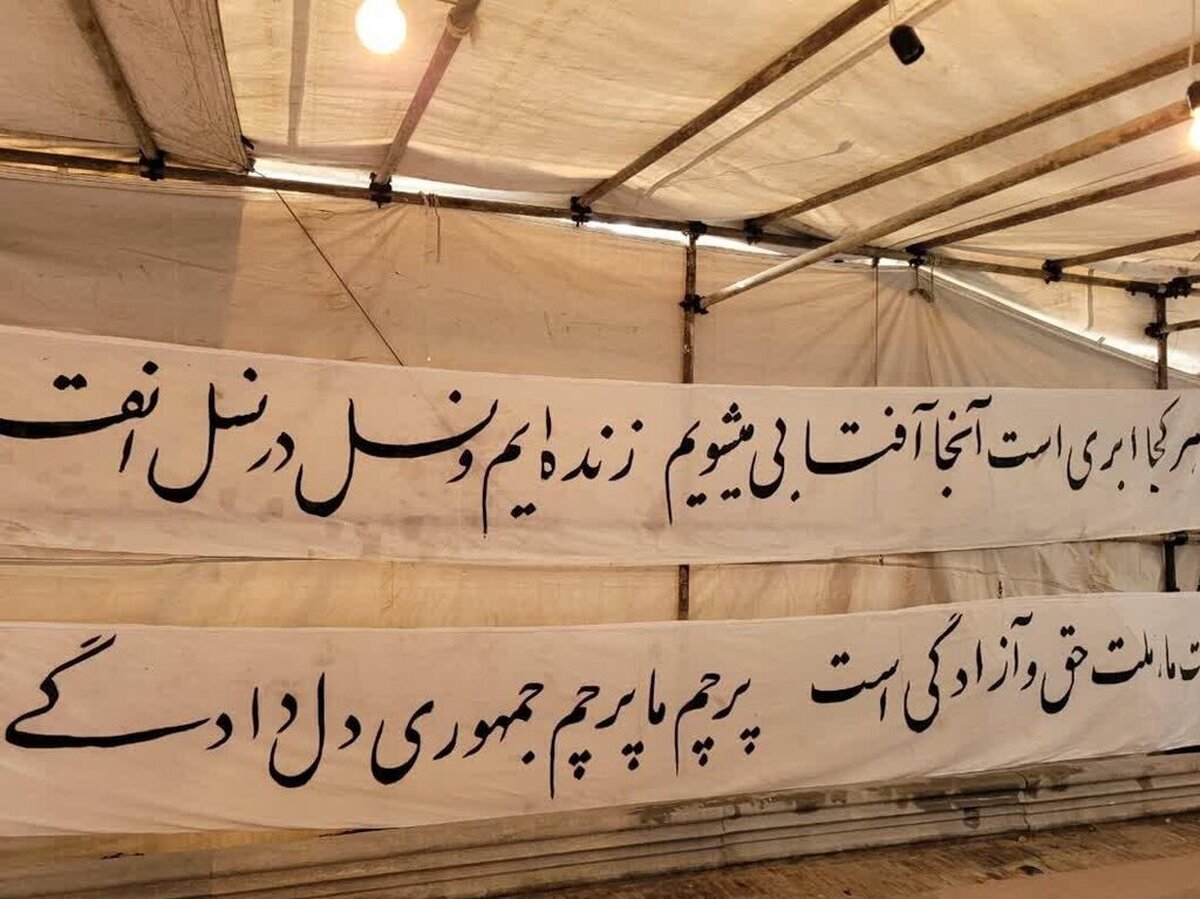 هر کجا ابری است آنجا آفتابی میشویم زنده ایم و نسل در نسل انق
ت ما، ملت حق و آزادگی است پرچم ما پرچم جمهوری دلدادگی